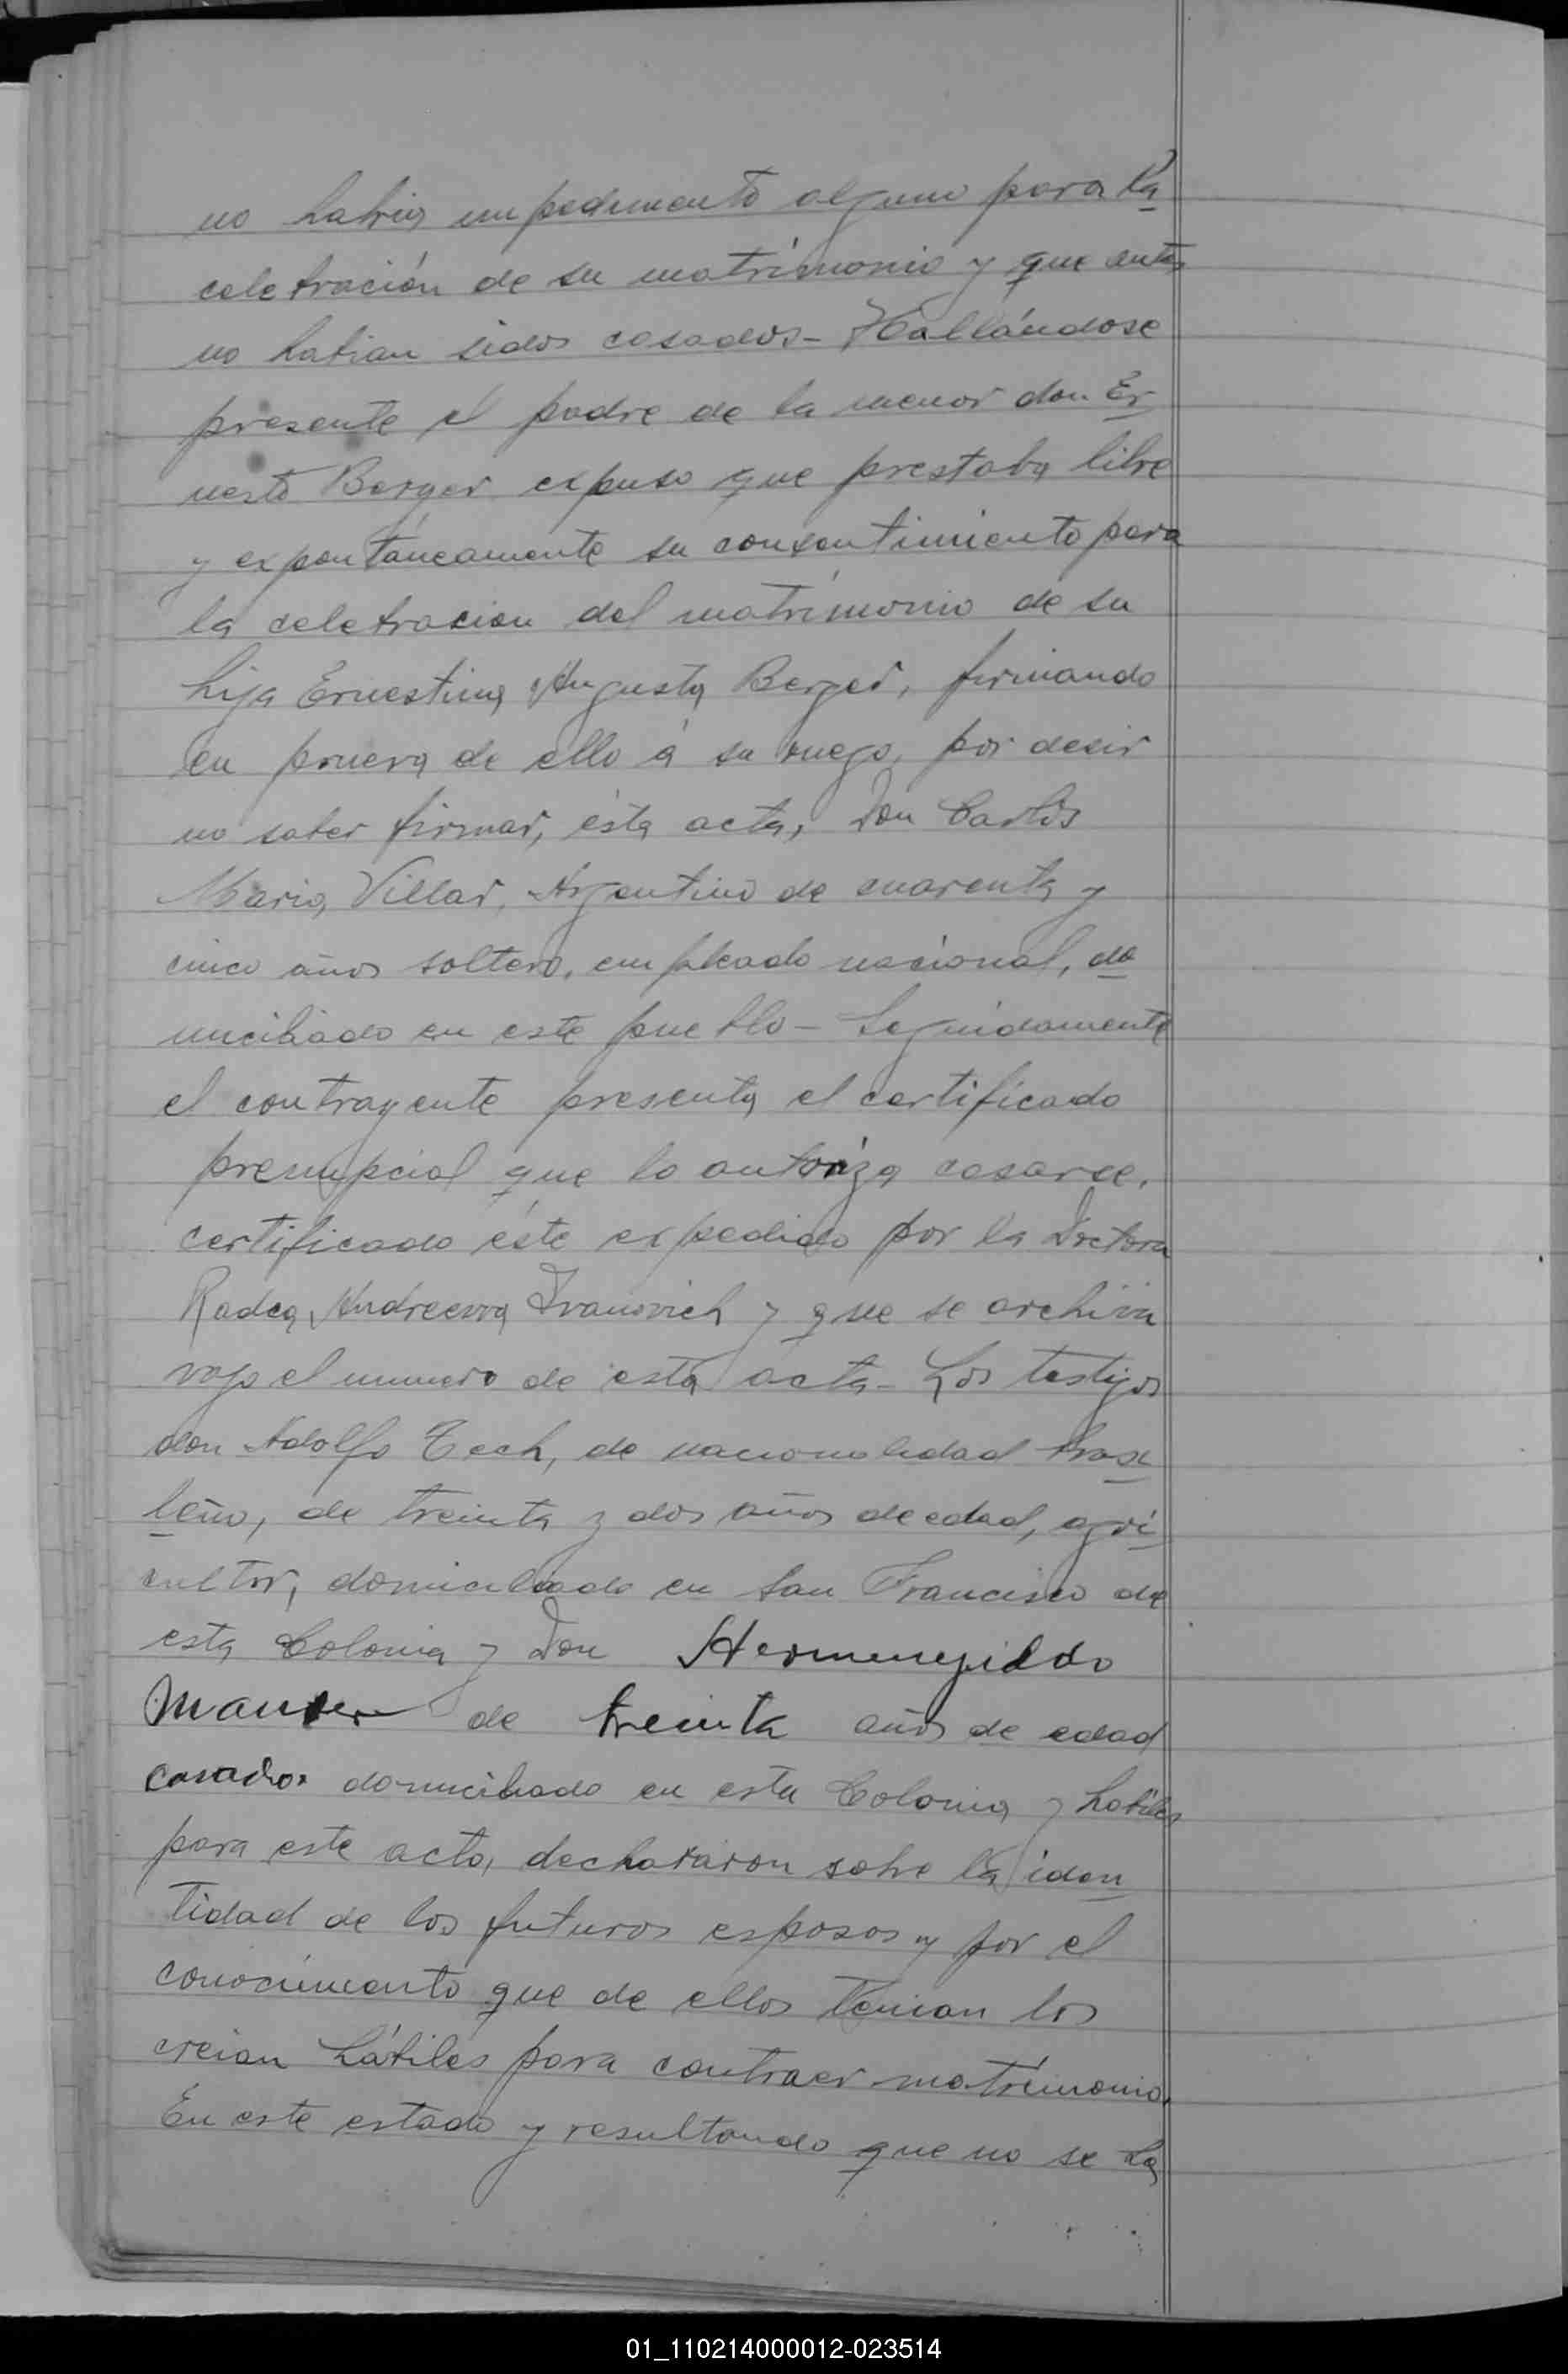 no habia impedimento alguno para la
celebración de su matrimonio y que antes
no habian sidos casados - Hallándose
presente el padre de la menor don Er
nesto Berger expuso que prestaba libre
y expontáneamente su consentimiento para
la celebracion del matrimonio de su
hija Ernestina Augusta Berger, firmando
en prueva de ello á su ruego, por desir
no saber firmar, ésta acta, Don Carlos
Maria Villar, Argentino de cuarenta y
cinco años soltero, empleado nacional, do
miciliado en este pueblo - Seguidamente
el contrayente presenta el certificado
prenupcial que lo autoriza casarce,
certificado éste expedido por la Doctora
Radca Andreewa Ivanovich y que se archiva
vajo el numero de esta acta - Los testigos
don Adolfo Tech, de nacionalidad brasi
leño, de treinta y dos años de edad, agri
cultor, domiciliado en San Francisco de
esta Colonia y Don Hermenegildo
de treinta años de edad
casados domiciliado en esta Colonia y habiles
para este acto, declararon sobre la iden
tidad de los futuros esposos y por el
conocimiento que de ellos tenian los
creian hábiles para contraer matrimonio.
En este estado y resultando que no se ha
01_110214000012-023514